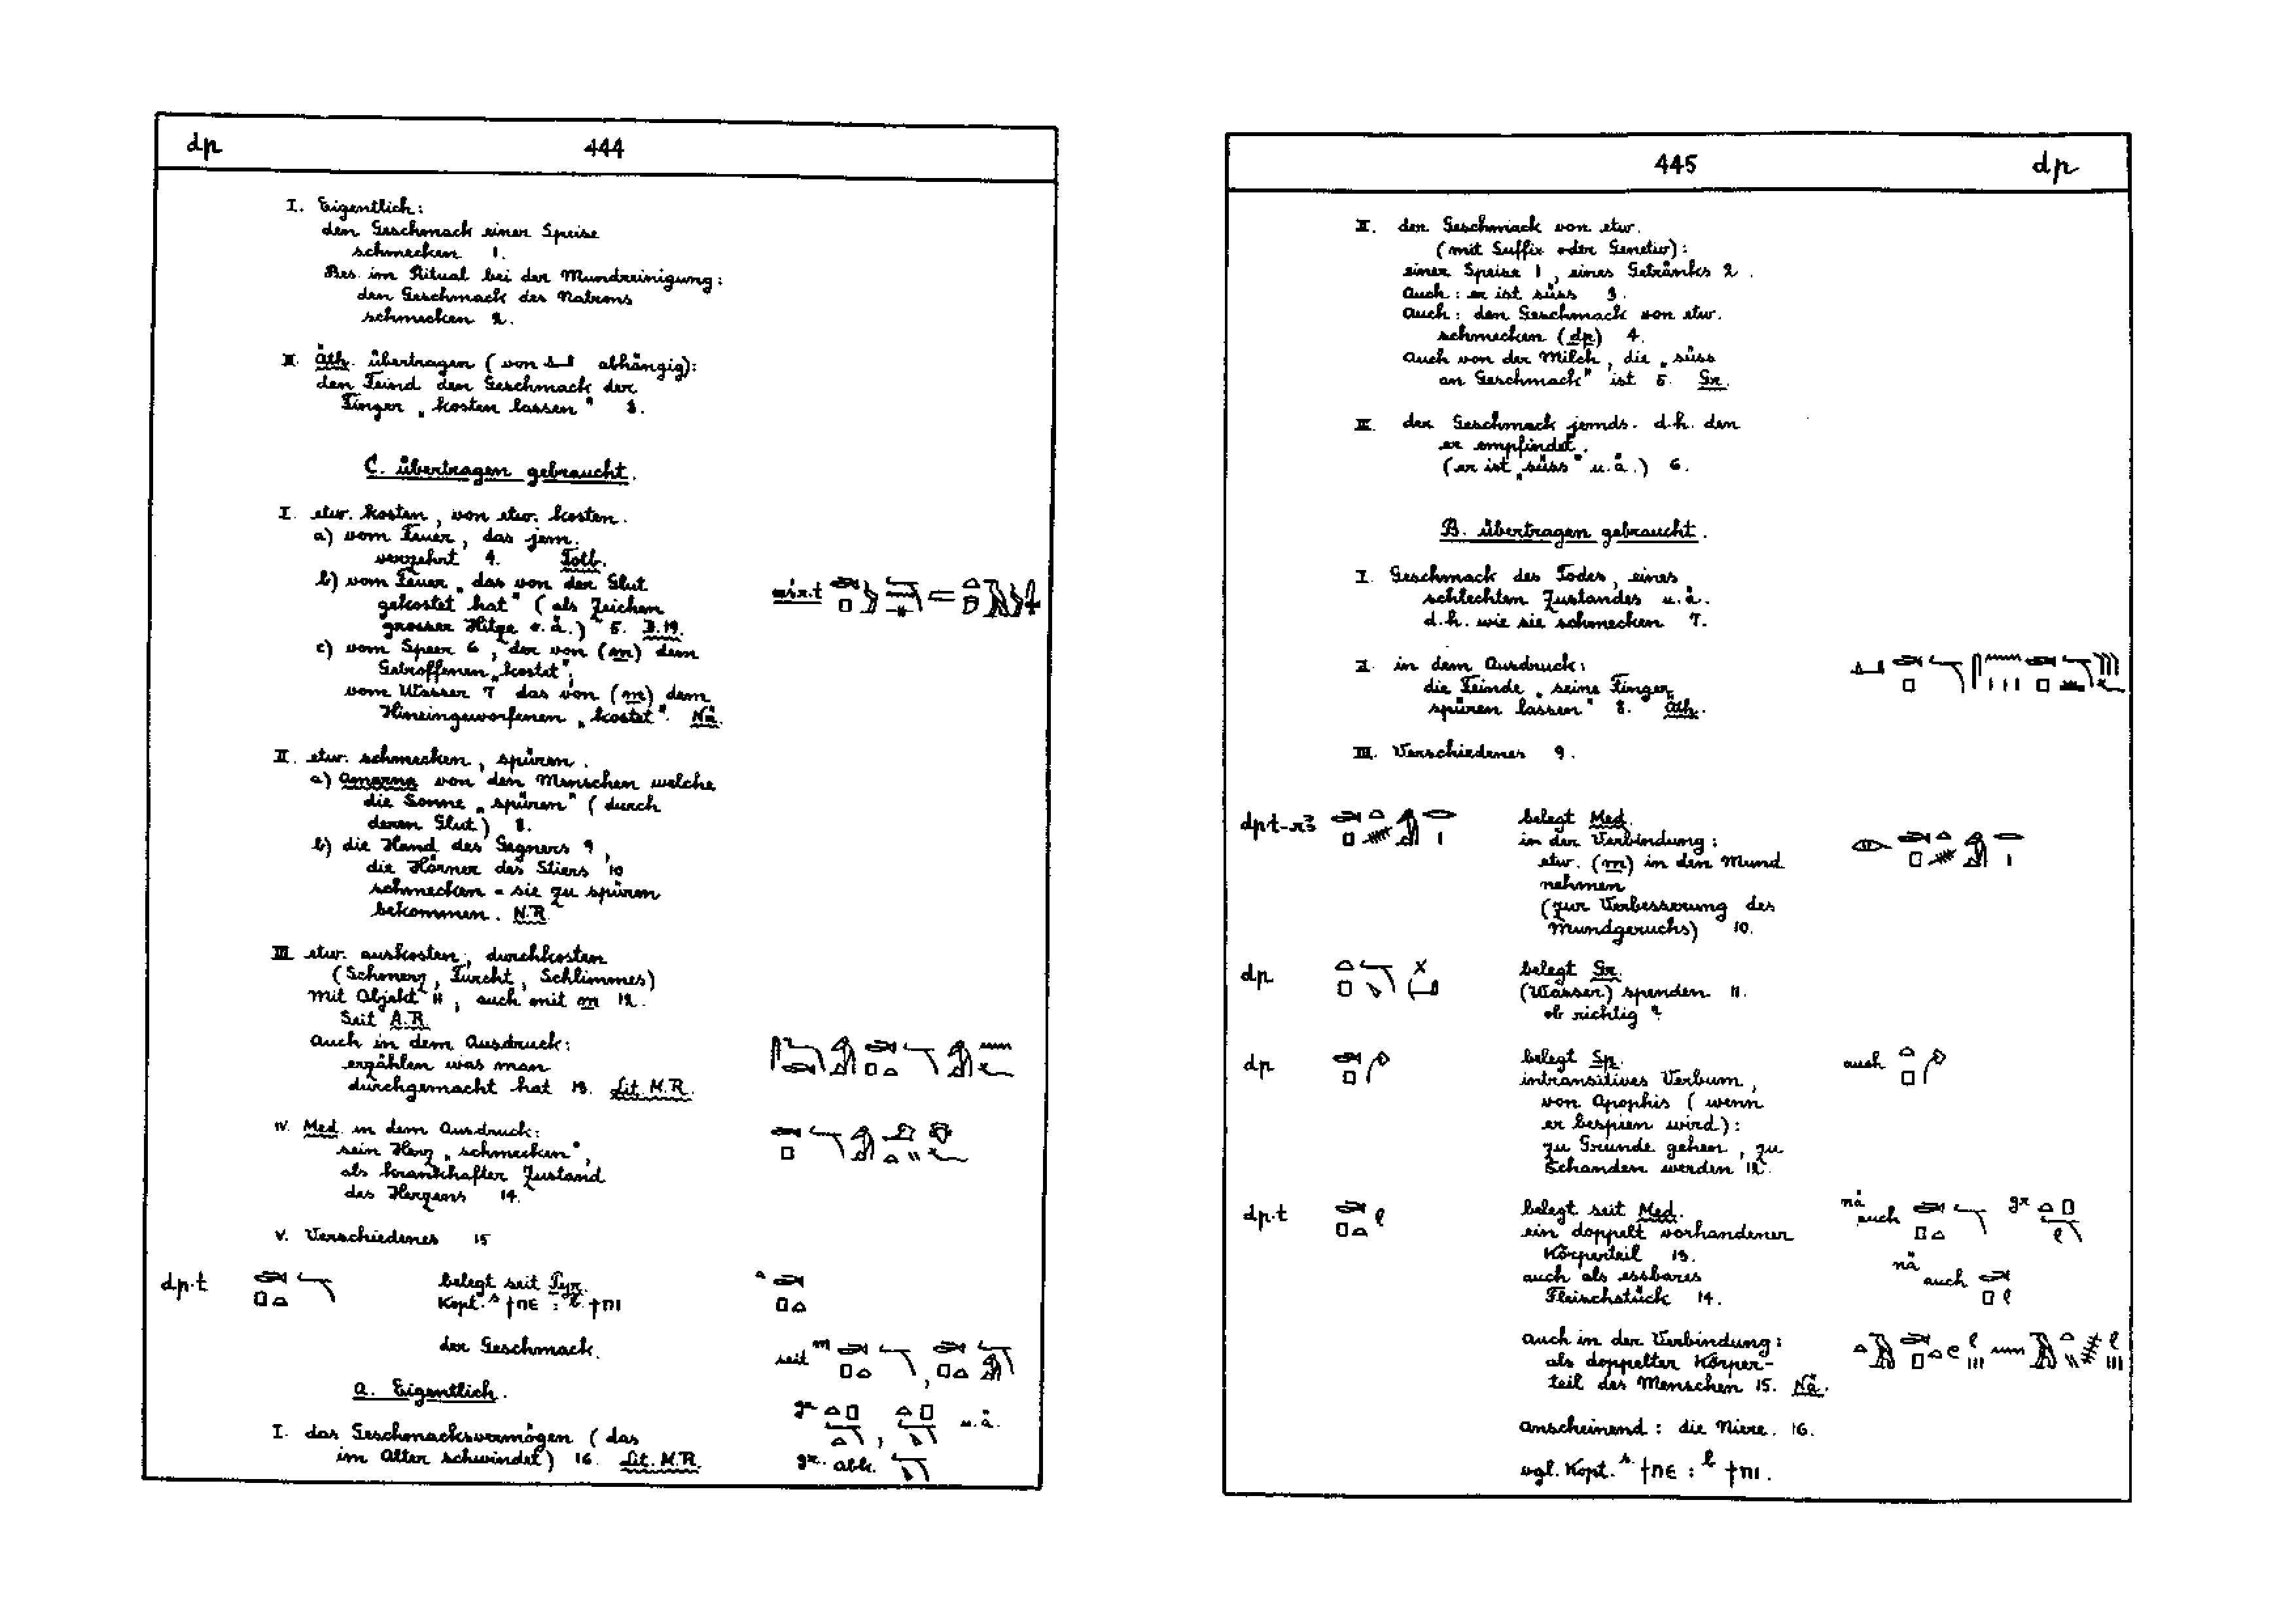 dp 444
I. Eigentlich:
den Geschmack einer Speise
schmecken 1.
Bes. im Ritual bei der Mundreinigung:
den Geschmack des Natrons
schmecken 2.
II. Äth. übertragen (von abhängig):
den Feind den Geschmack der
Finger „kosten lassen" 3.
C. übertragen gebraucht.
I. etw. kosten, von etw. kosten.
a) vom Feuer, das jem.
verzehrt 4. Totb.
b) vom Feuer „das von der Glut
gekostet hat" (als Zeichen
grosser Hitze o.ä.) 5. D.19.
c) vom Speer 6, der von (m) dem
Getroffenen „kostet",
vom Wasser 7 das von (m) dem
Hineingeworfenen „kostet". Nä.
II. etw. schmecken, spüren.
a) Amarna von den Menschen welche
die Sonne „spüren" (durch
deren Glut) 8.
b) die Hand des Gegners 9,
die Hörner des Stiers 10
schmecken = sie zu spüren
bekommen. N.R.
III. etw. auskosten, durchkosten
(Schmerz, Furcht, Schlimmes)
mit Objekt 11, auch mit m 12.
Seit A.R.
Auch in dem Ausdruck:
erzählen was man
durchgemacht hat 13. Lit. M.R.
IV. Med. in dem Ausdruck:
sein Herz „schmecken",
als krankhafter Zustand
des Herzens 14.
V. Verschiedenes 15
dp.t belegt seit Pyr.
Kopt. s ϯⲡⲉ : b ϯⲡⲓ
der Geschmack. seit m
A. Eigentlich.
gr u.ä.
I. das Geschmacksvermögen (das
im Alter schwindet) 16. Lit. M.R. gr. abk.
445 dp
II. der Geschmack von etw.
(mit Suffix oder Genetiv):
einer Speise 1, eines Getränks 2.
Auch: er ist süss 3.
Auch: den Geschmack von etw.
schmecken (dp) 4.
Auch von der Milch, die „süss
an Geschmack" ist 5. Gr.
III. der Geschmack jemds. d.h. den
er empfindet.
(er ist „süss" u.ä.) 6.
B. übertragen gebraucht.
I. Geschmack des Todes, eines
schlechten Zustandes u.ä.
d.h. wie sie schmecken 7.
II. in dem Ausdruck:
die Feinde „seine Finger
spüren lassen" 8. Äth.
III. Verschiedenes 9.
dp.t-rꜣ belegt Med.
in der Verbindung:
etw. (m) in den Mund
nehmen
(zur Verbesserung des
Mundgeruchs) 10.
dp belegt Gr.
(Wasser) spenden 11.
ob richtig?
dp belegt Sp. auch
intransitives Verbum,
von Apophis (wenn
er bespien wird):
zu Grunde gehen, zu
Schanden werden 12.
dp.t belegt seit Med. nä auch gr
ein doppelt vorhandener
Körperteil 13.
auch als essbares nä auch
Fleischstück 14.
auch in der Verbindung:
als doppelter Körper-
teil des Menschen 15. Nä.
Anscheinend: die Niere. 16.
vgl. Kopt. s. ϯⲡⲉ : b ϯⲡⲓ.